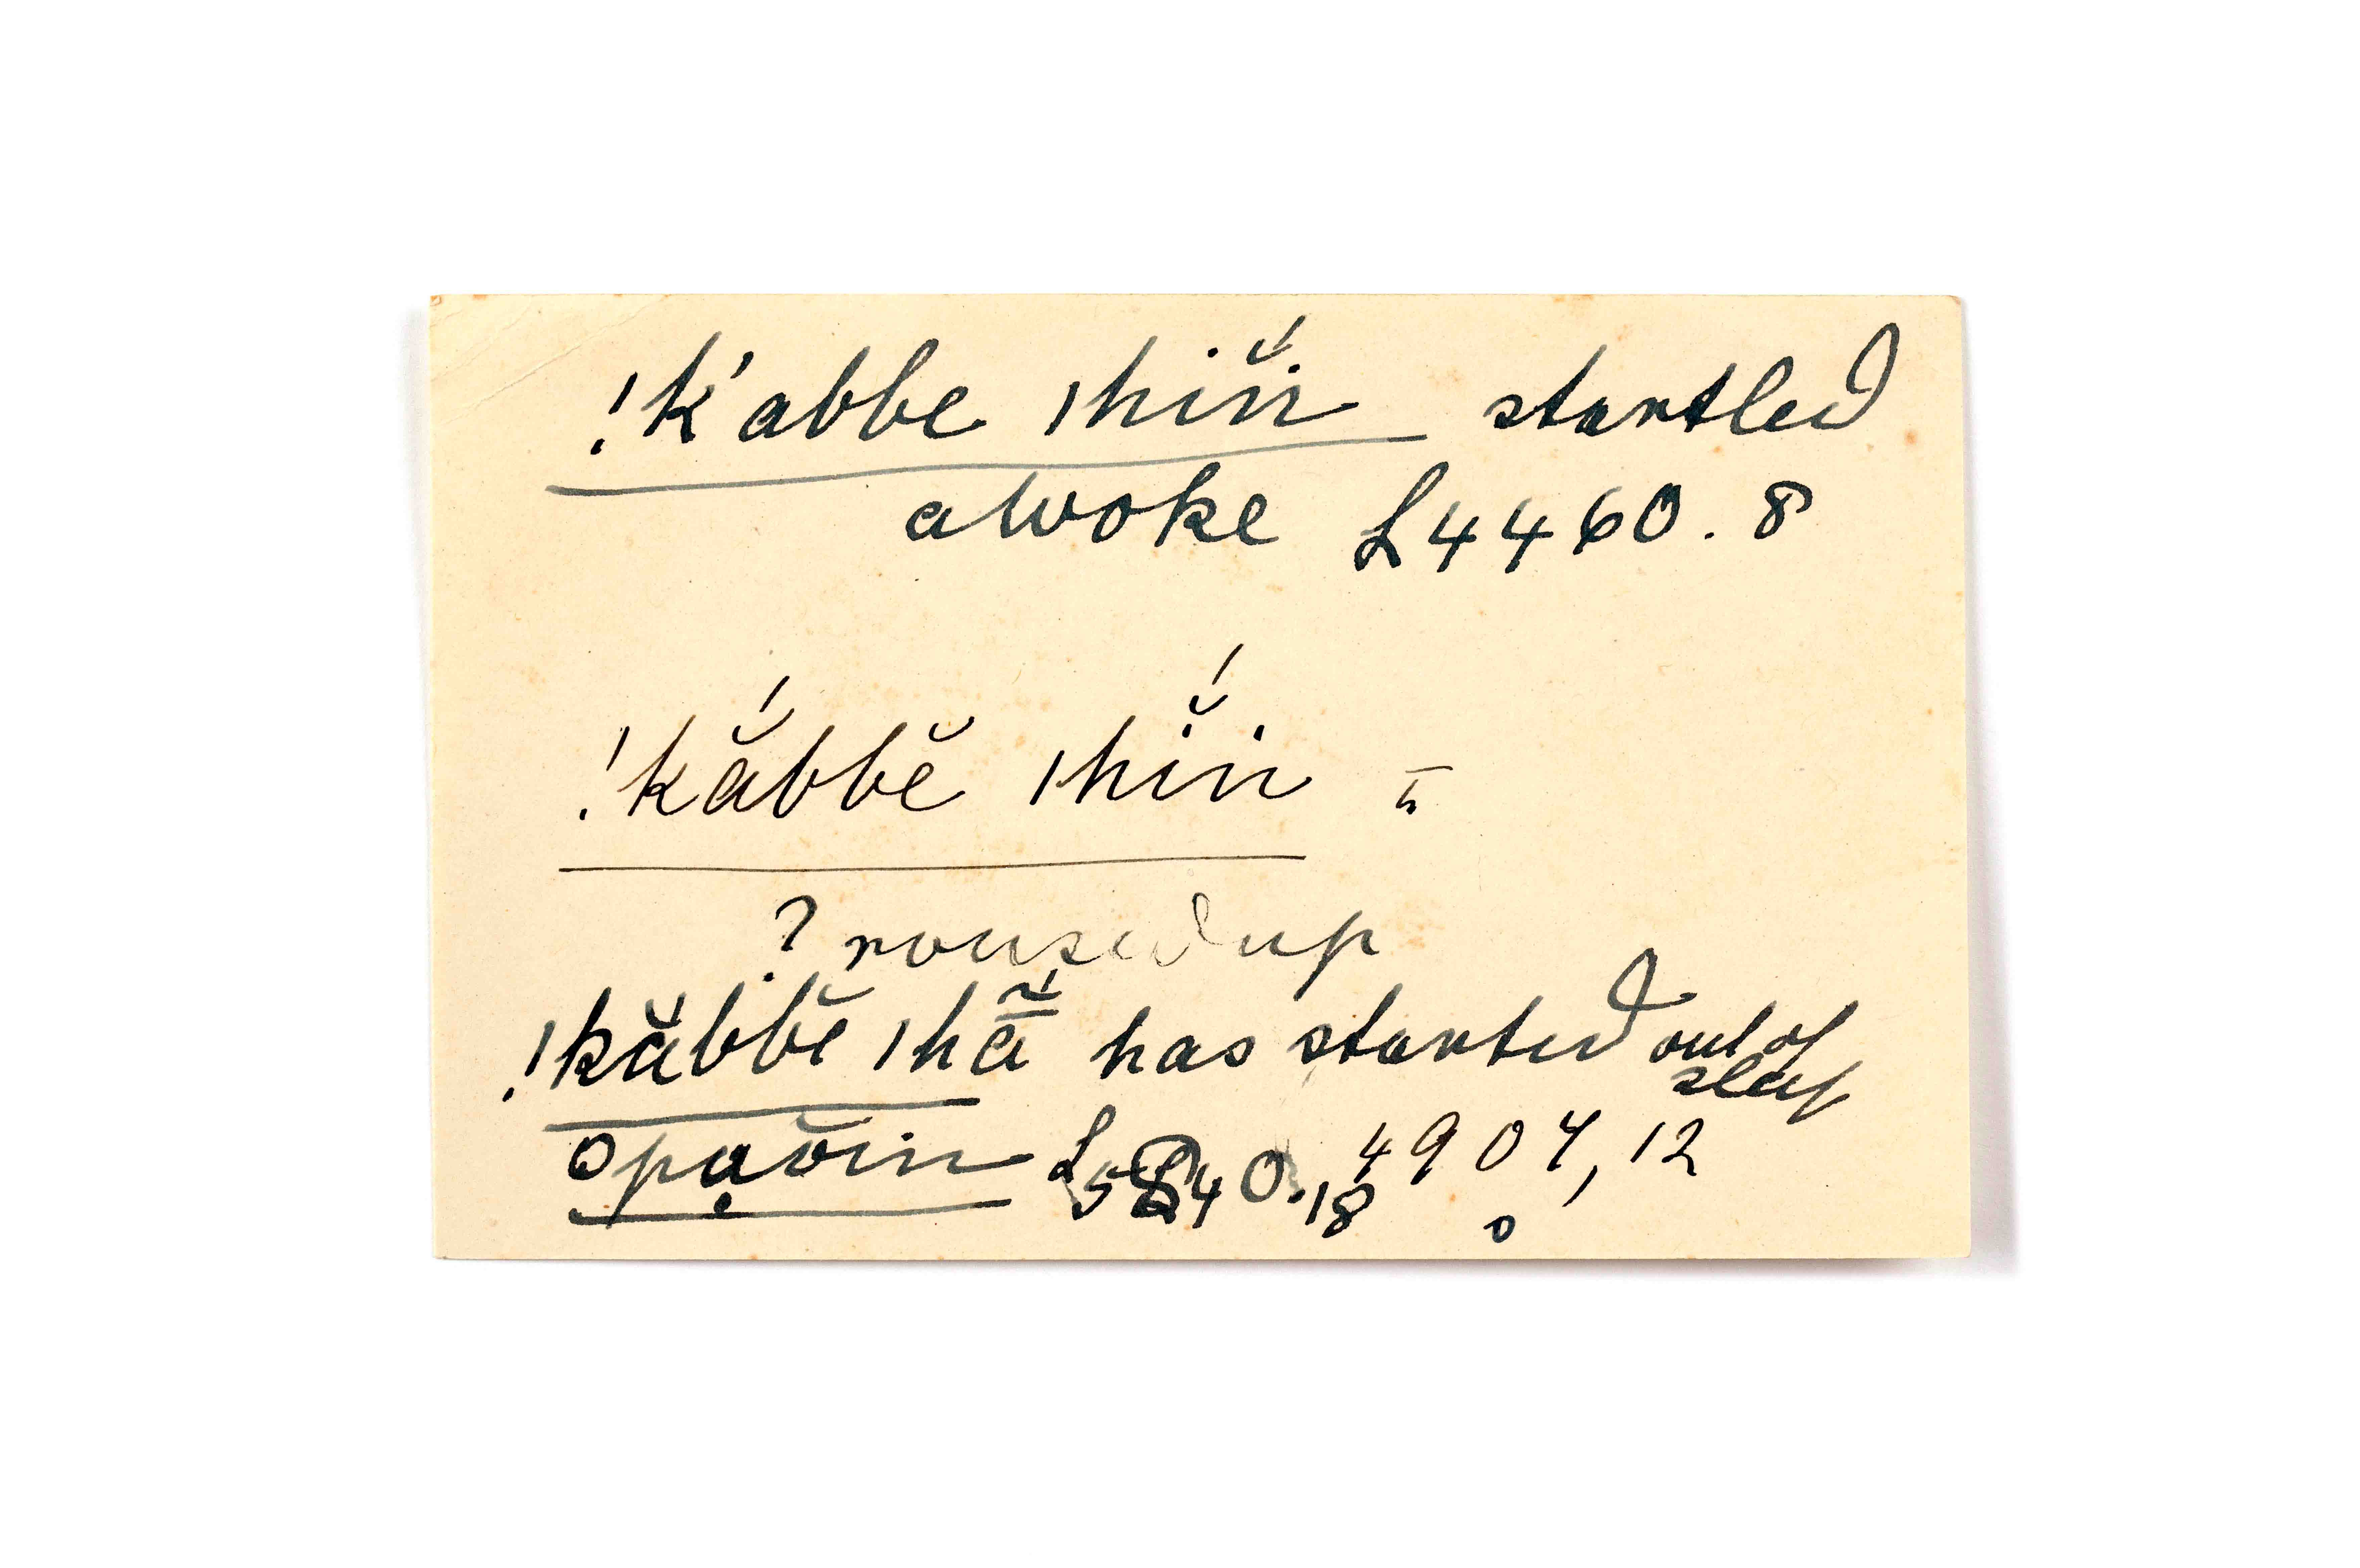 !k'abbe |hĭ́n startled
awoke L4460.8
!kắbbĕ |hĭ́n =
? roused up
!kắbbĕ |hā̃́ has started out of
sleep
opạŏin L 5840.18 4907,12